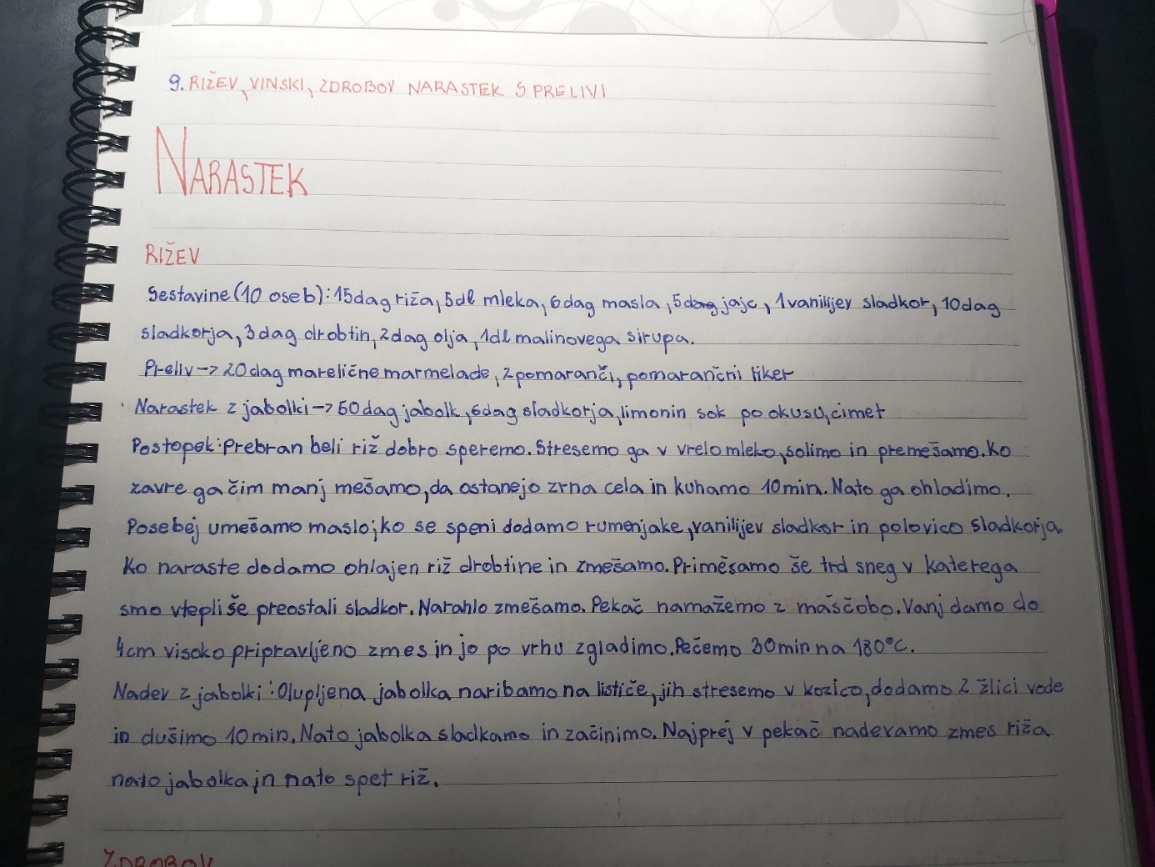 9. RIŽEV, VINSKI, ZDROBOV NARASTEK S PRELIVI
NARASTEK
RIŽEV
Sestavine (10 oseb): 15dag riža, 5dl mleka, 6dag masla, 5 jajc, 1 vanilijev sladkor, 10dag
sladkorja, 3dag drobtin, 2dag olja, 1dl malinovega sirupa.
Preliv -> 20dag marelične marmelade, 2 pomaranči, pomarančni liker
Narastek z jabolki -> 60dag jabolk, 6dag sladkorja, limonin sok po okusu, cimet
Postopek: Prebran beli riž dobro speremo. Stresemo ga v vrelo mleko, solimo in premešamo. Ko
zavre ga čim manj mešamo, da ostanejo zrna cela in kuhamo 10min. Nato ga ohladimo.
Posebej umešamo maslo; ko se speni dodamo rumenjake, vanilijev sladkor in polovico sladkorja.
Ko naraste dodamo ohlajen riž drobtine in zmešamo. Primešamo še trd sneg v katerega
smo vtepli še preostali sladkor. Narahlo zmešamo. Pekač namažemo z maščobo. Vanj damo do
4cm visoko pripravljeno zmes in jo po vrhu zgladimo. Pečemo 30min na 180°C.
Nadev z jabolki: Olupljena jabolka naribamo na lističe, jih stresemo v kozico, dodamo 2 žlici vode
in dušimo 10min. Nato jabolka sladkamo in začinimo. Najprej v pekač nadevamo zmes riža
nato jabolka in nato spet riž.
ZDROBOV